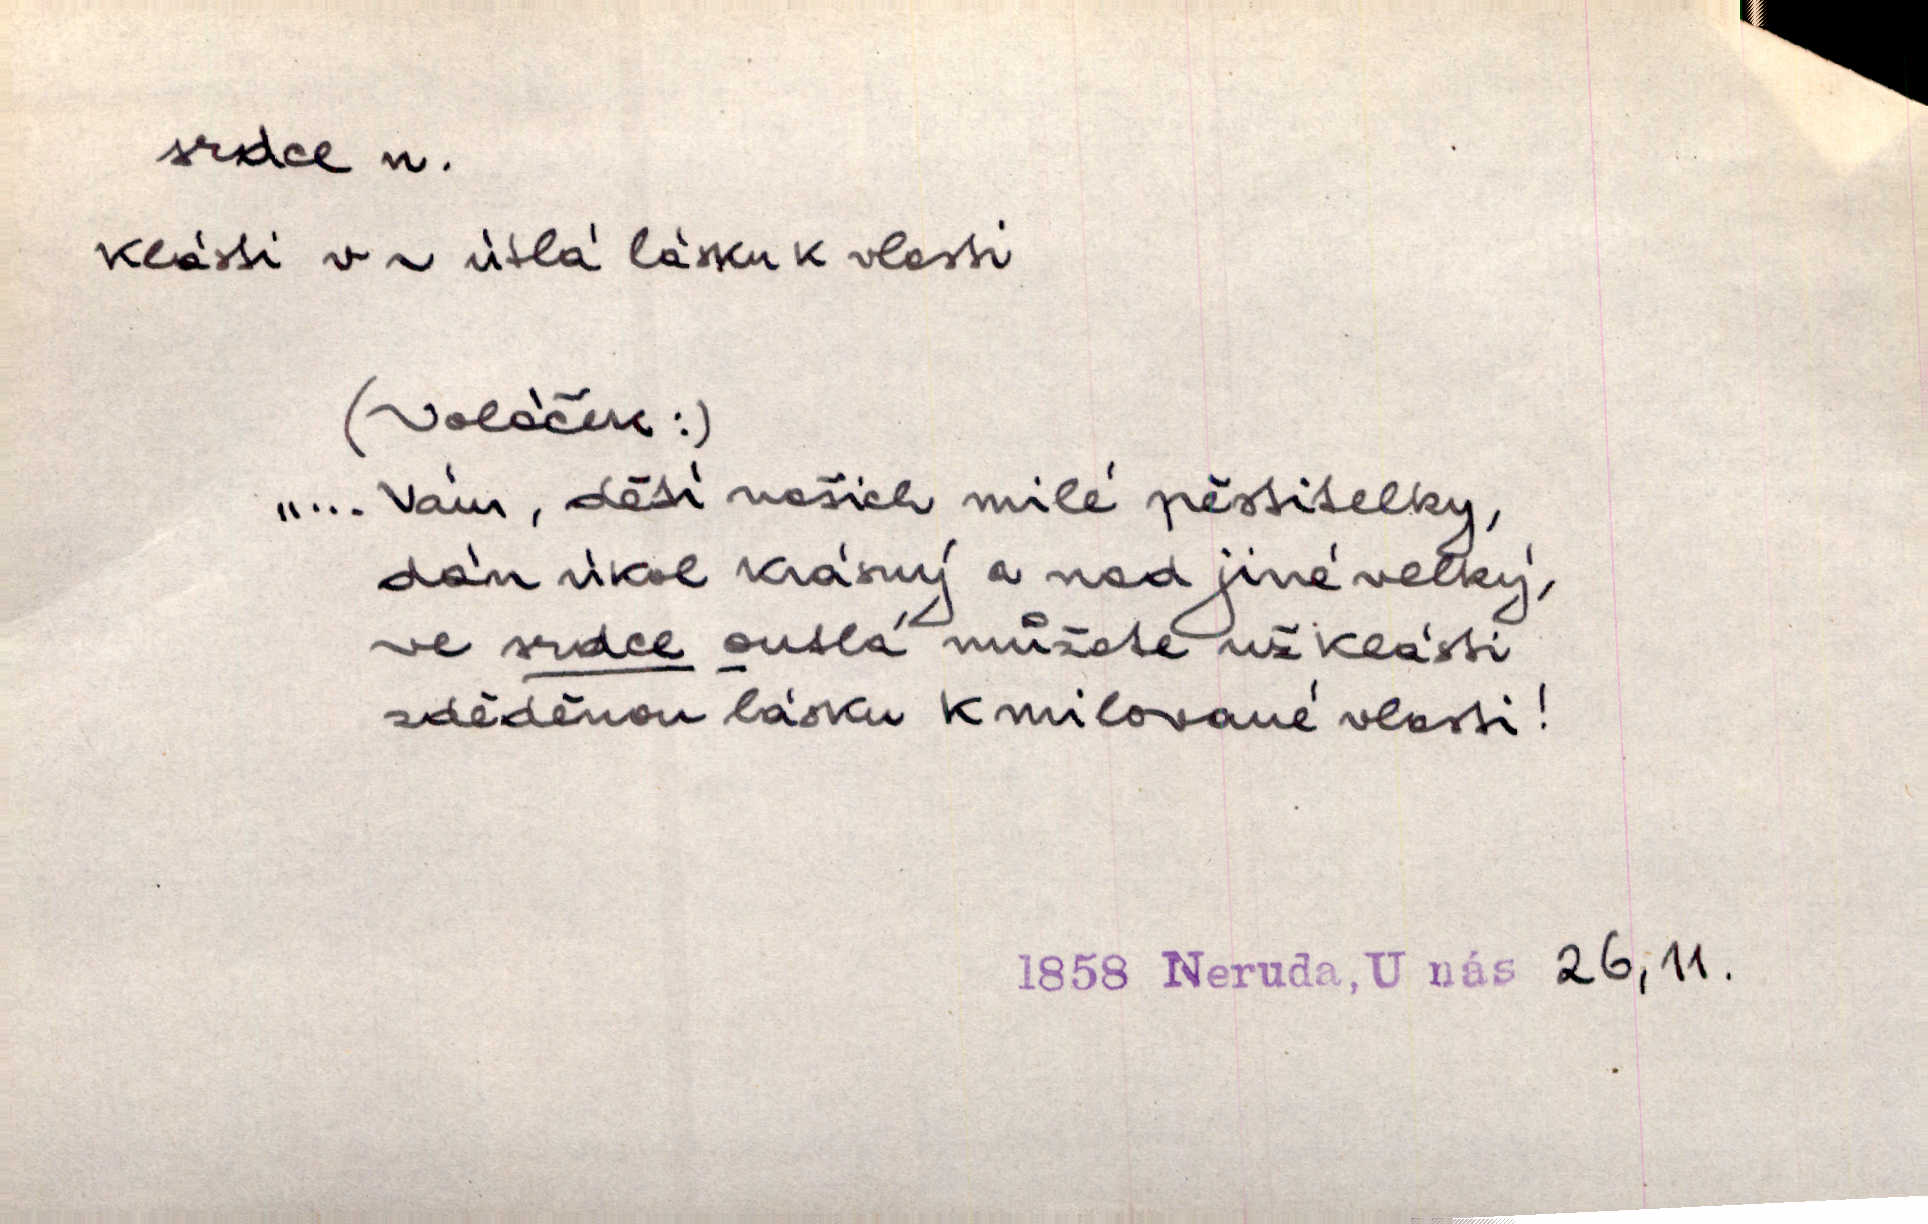 srdce n.
klásti v ~ útlá lásku k vlasti
(Voláček:)
"... Vám, dětí našich milé pěstitelky,
dán úkol krásný a nad jiné velký,
ve srdce outlá můžete už klásti
zděděnou lásku k milované vlasti!
1858 Neruda, U nás 26, 11.